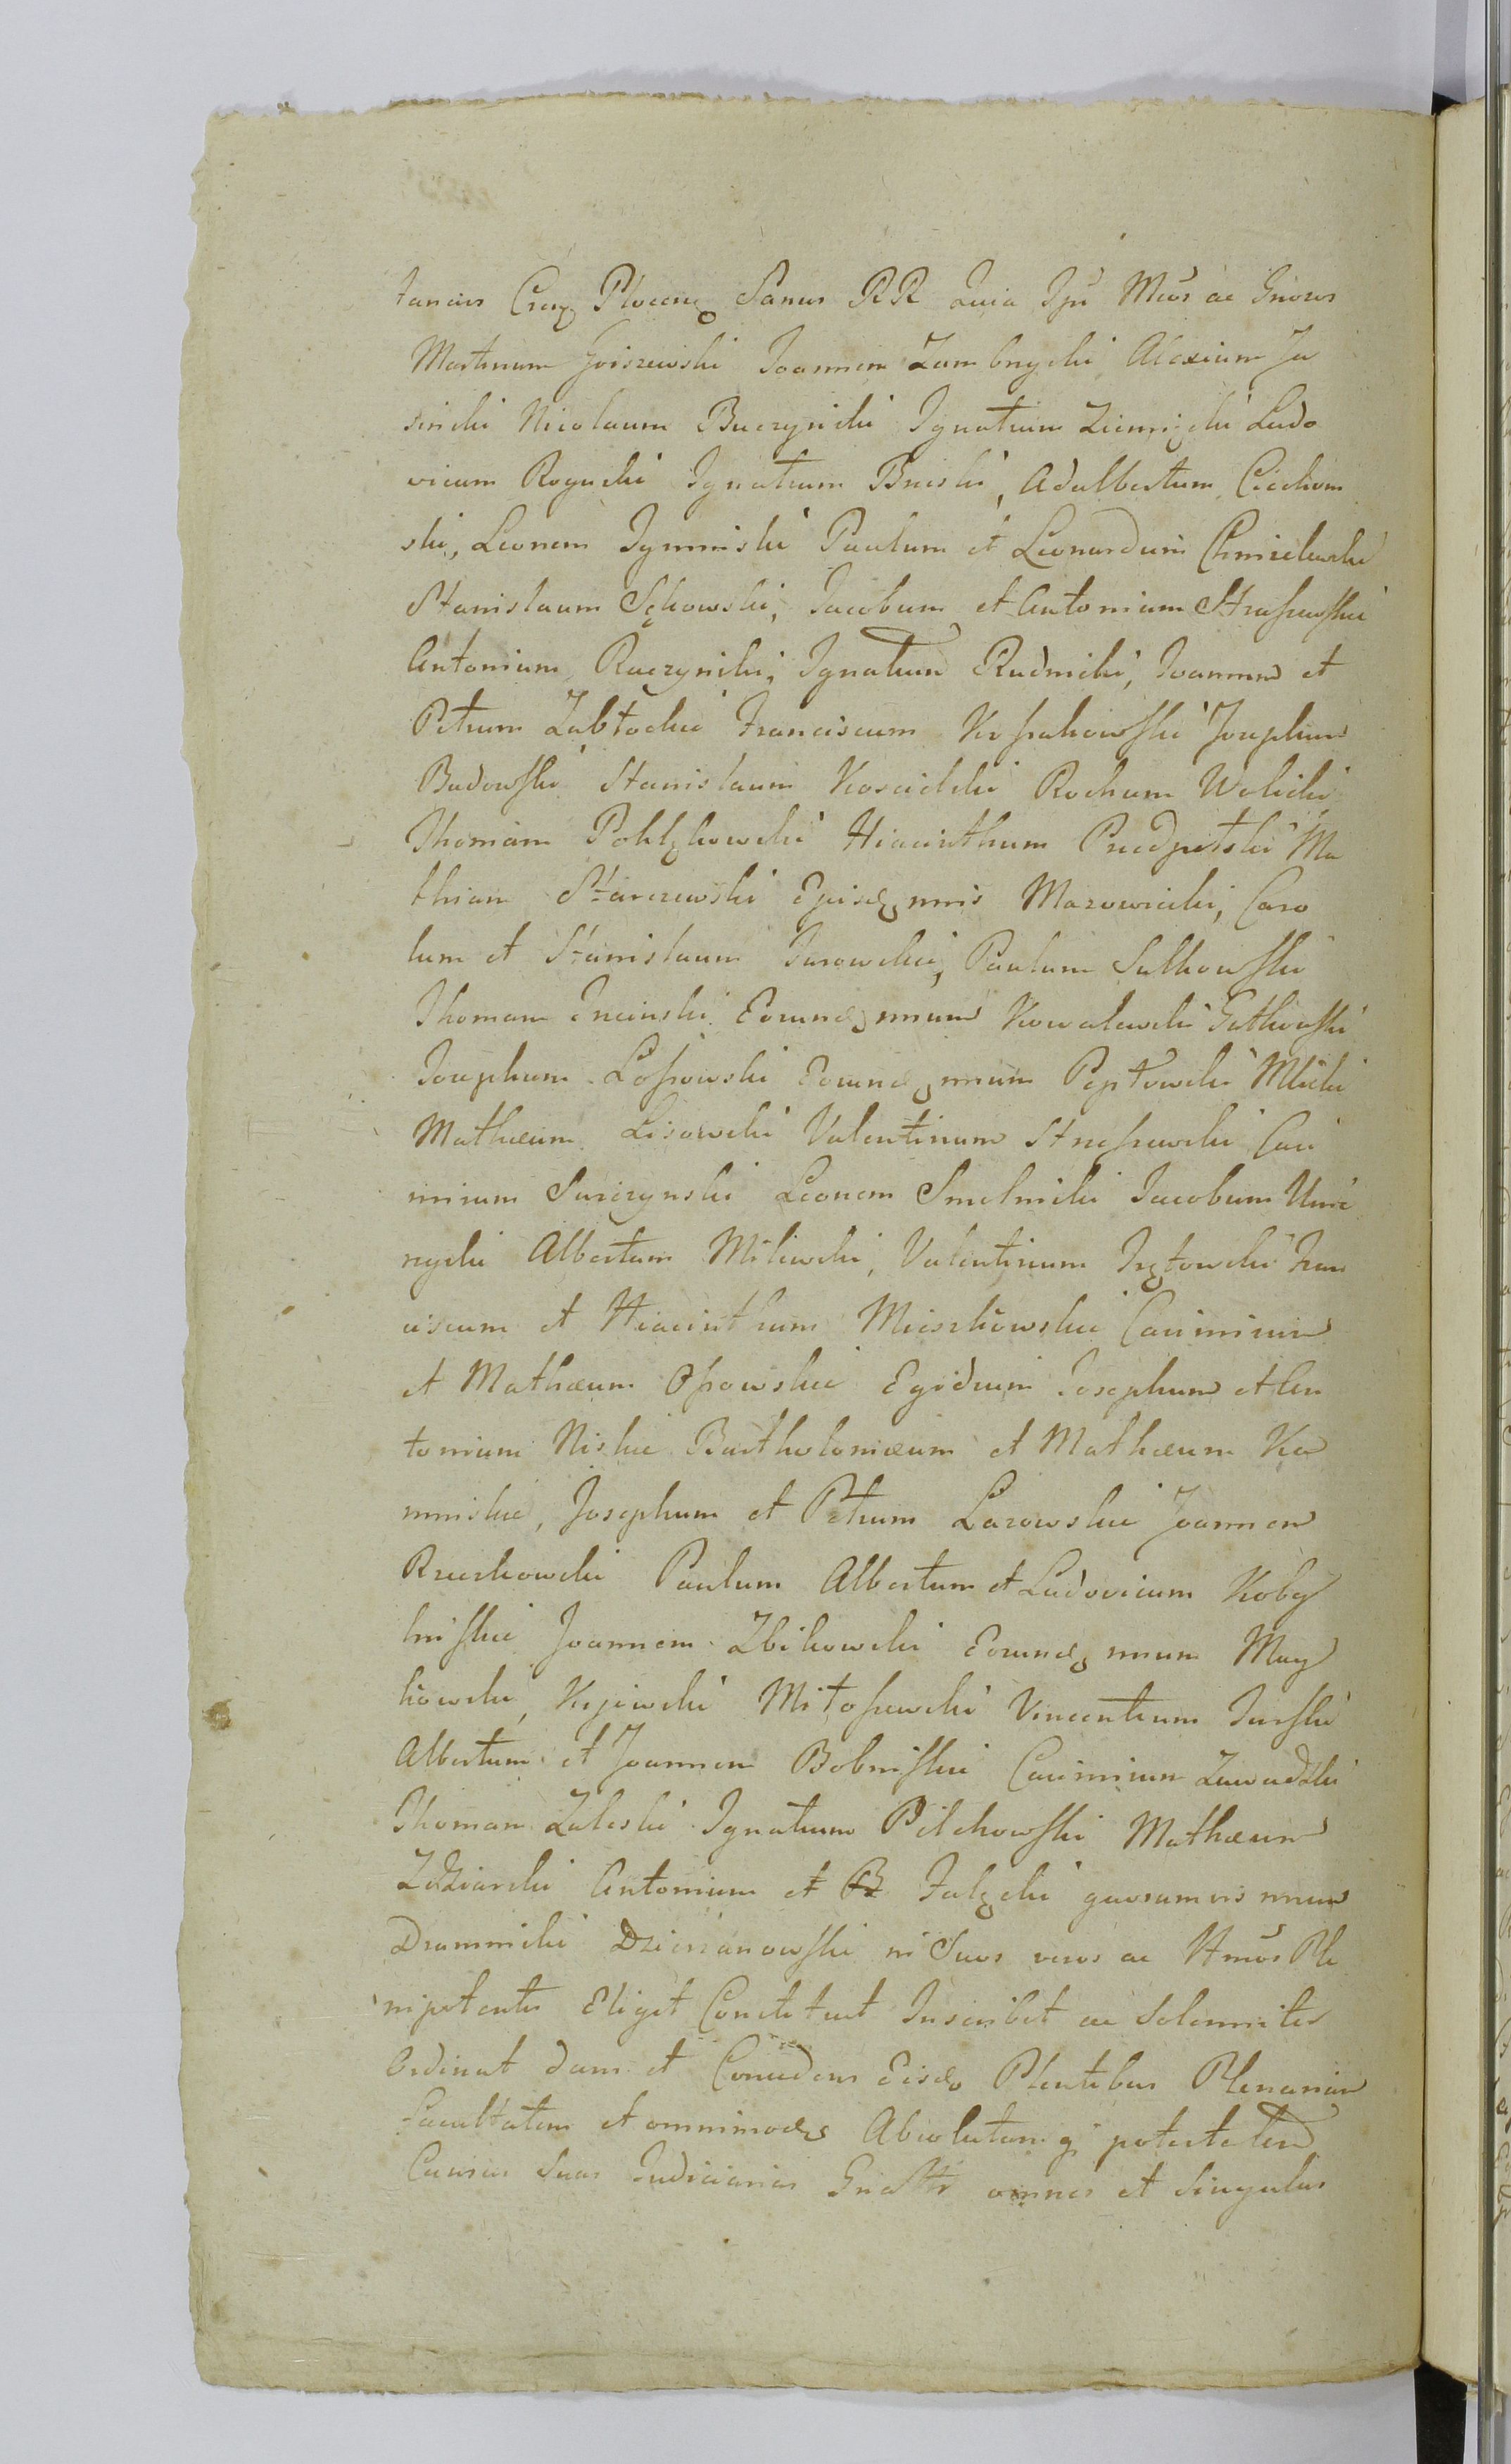 tancius Crey Plocens Sanus RR Quia Ipse Mcos ac Gnosus
Martinum Goiszewski Joannem Zambrzycki Alexium Ja
sinski Nicolaum Buczynski Ignatium Ziemięcki Ludo
vicum Roguski Ignatium Bniski, Adalbertum Ciechom
ski, Leonem Tyminski Paulum et Leonardum Chmielewskie
Stanislaum Sękowski, Jacobum et Antonium Straszewskie
Antonium Raczynski, Ignatium Rudnicki, Joannem et
Petrum Zabłockie Franciscum Kossakowski Josephum
Budowski Stanislaum Koscielski Rochum Wolicki
Thomam Hiacinthum Ma
thiam Starczewski Episdem nnis Mazowiecki, Caro
lum et Stanislaum Turowskie, Paulum Sulkowski
Thomam Eorund nnum Kowalewski Gutkowski
Josephum Lossowski Eorund nnum Peptowski Mlicki
Mathæum Lisowski Valentinum Strzeszewski Casi
mirum Suszczynski Leonem Smolenski Jacobum Umie
nyski Albertum Milewski, Valentinum Fran
ciscum et Hiacinthum Mieszkowskie Casimirum
et Mathæum Ossowskie Egidium Josephum et An
tonium Niskie Bartholomæum et Mathæum Ka
minskie, Josephum et Petrum Lazowskie Joannem
Rzeszkowski Paulum Albertum et Ludovicum Koby
linskie Joannem Zbikowski Eorund nnum May
kowski, Kijewski Mitoszewski Vincentium Turski
Albertum et Joannem Bobinskie Casimirum Zawadzki
Thomam Zaleski Ignatium Pilchowski Mathæum
Zdziarski Antonium et Falęcki quorumvis nnum
Draminski Dzierzanowski in Suos veros ac Ltmos Ple
nipotentes Eligit Constituit Inscribit ac Solemniter
Ordinat dans et Concedens Eisdem Plentibus Plenariam
facultatem et omnimodam Absolutamq potestatem
Causas Suas Judiciarias Gnaltr omnes et Singulas